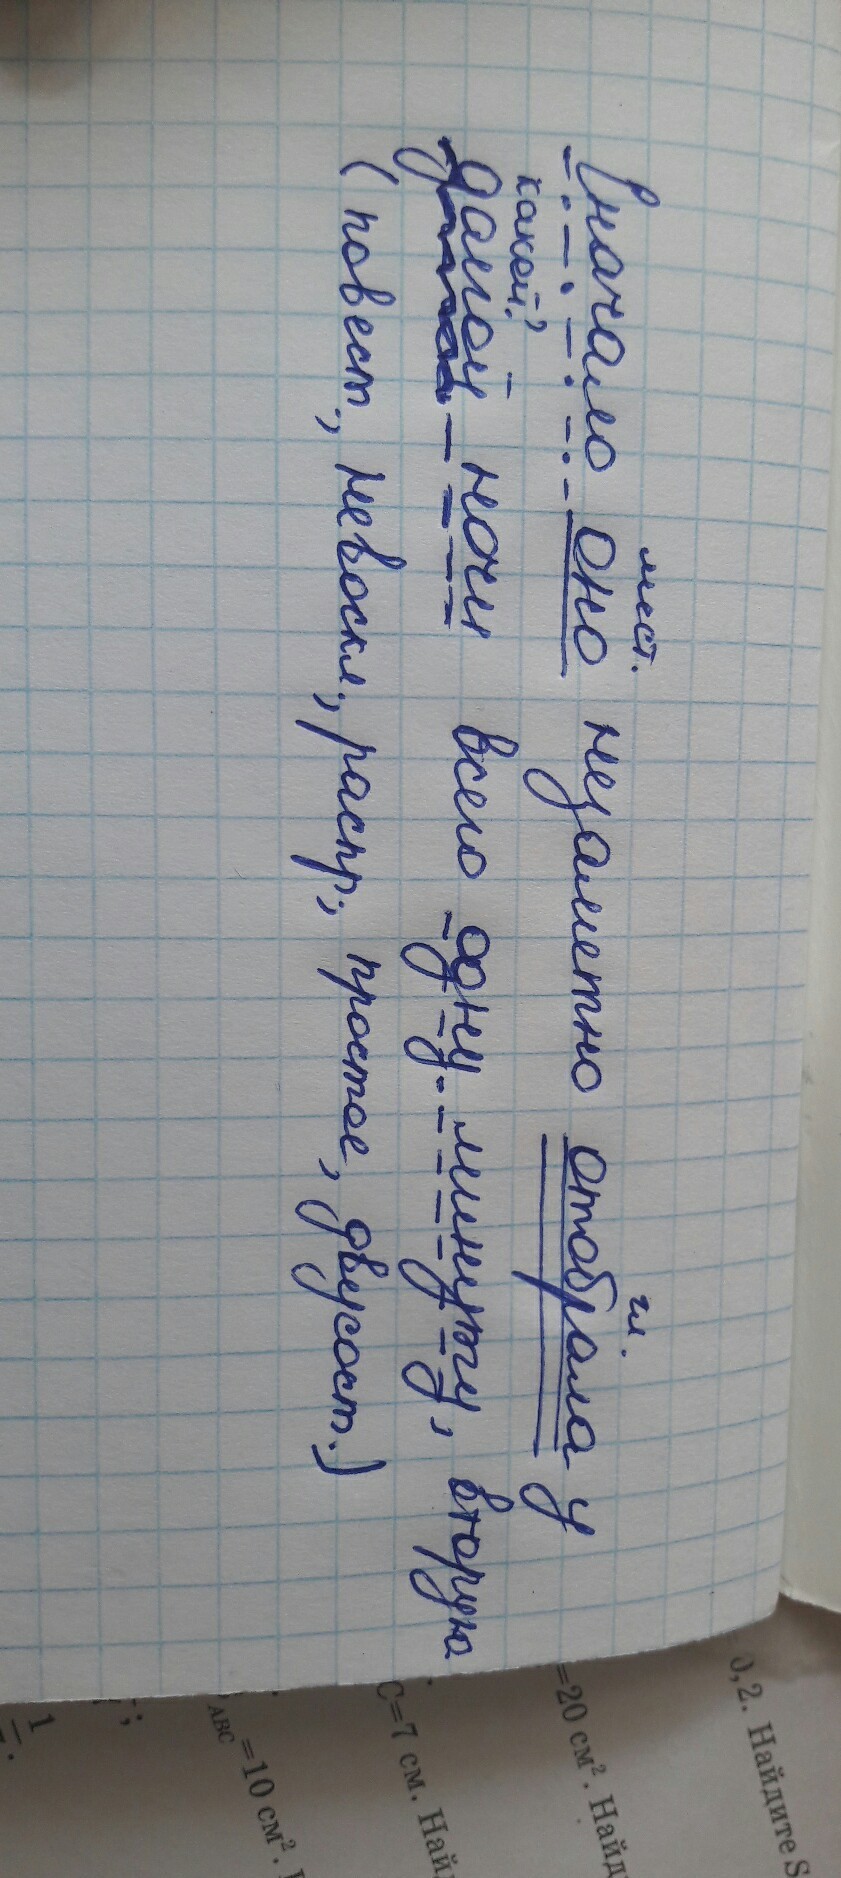 мест. гл.
Вначало оно незаметно отобрала у
какой?
долгой ночи всего одну минуту, вторую
(повест., невоскл., распр., простое, двусост.)
0,2. Найдите S
=20 см². Найд
C=7 см. Най
ABC=10 см².
1